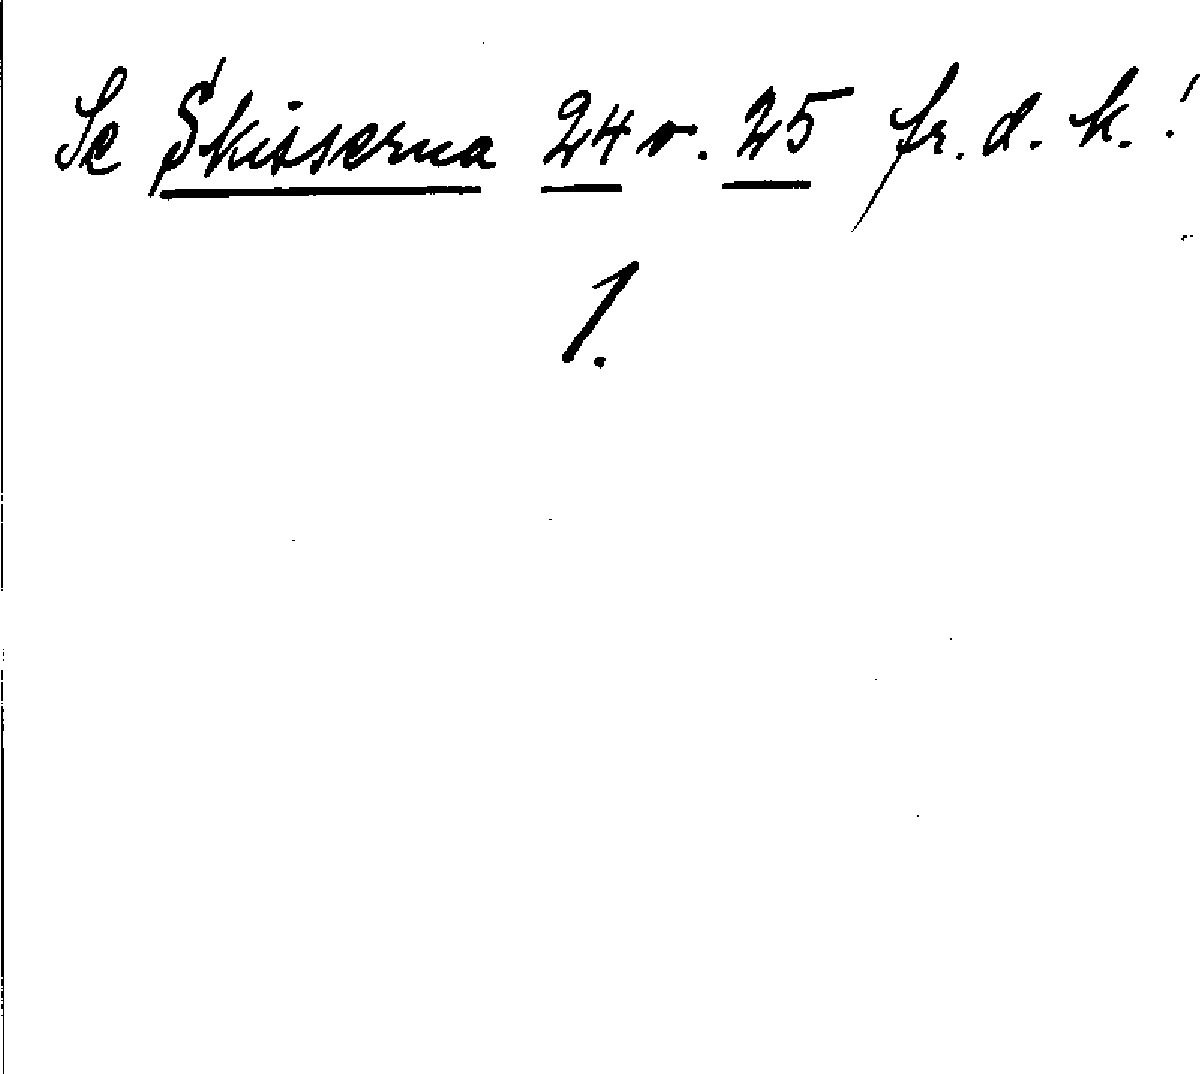 Se Skisserna 24 o. 25 fr. d. k.!
1.